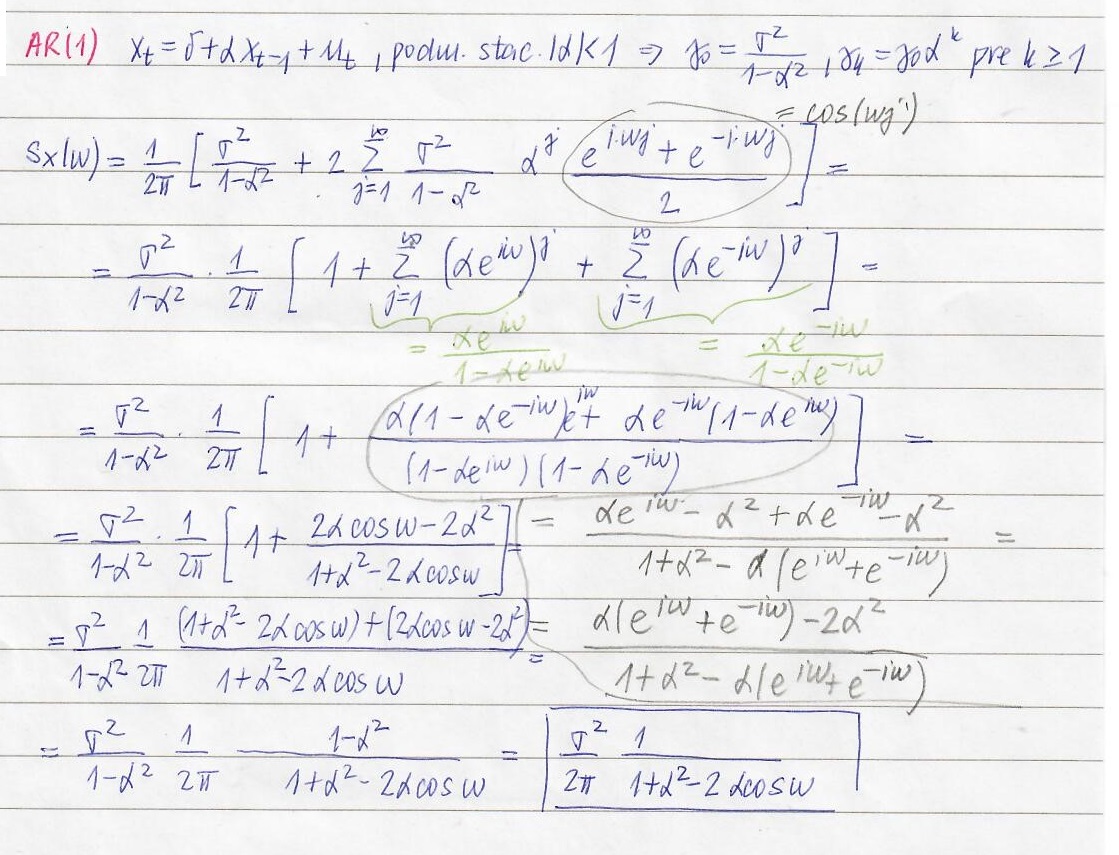 AR(1) xₜ = δ + αxₜ₋₁ + uₜ , podm. stac. |α| < 1 ⇒ γ₀ = σ²/(1-α²) , γₖ = γ₀αᵏ pre k ≥ 1
= cos(wj)
Sx(w) = 1/(2π) [ σ²/(1-α²) + 2 ∑_{j=1}^{∞} σ²/(1-α²) αʲ (e^{i·wj} + e^{-i·wj})/2 ] =
= σ²/(1-α²) · 1/(2π) [ 1 + ∑_{j=1}^{∞} (αe^{iw})ʲ + ∑_{j=1}^{∞} (αe^{-iw})ʲ ] =
= αe^{iw}/(1-αe^{iw}) = αe^{-iw}/(1-αe^{-iw})
= σ²/(1-α²) · 1/(2π) [ 1 + (α(1-αe^{-iw})e^{iw} + αe^{-iw}(1-αe^{iw}))/((1-αe^{iw})(1-αe^{-iw})) ] =
= σ²/(1-α²) · 1/(2π) [ 1 + (2αcosw - 2α²)/(1+α²-2αcosw) ] = = (αe^{iw} - α² + αe^{-iw} - α²)/(1+α² - α(e^{iw}+e^{-iw})) =
= σ²/(1-α²) 1/(2π) ((1+α²-2αcosw)+(2αcosw-2α²))/(1+α²-2αcosw) = = (α(e^{iw}+e^{-iw})-2α²)/(1+α²-α(e^{iw}+e^{-iw}))
= σ²/(1-α²) 1/(2π) (1-α²)/(1+α²-2αcosw) = σ²/(2π) 1/(1+α²-2αcosw)